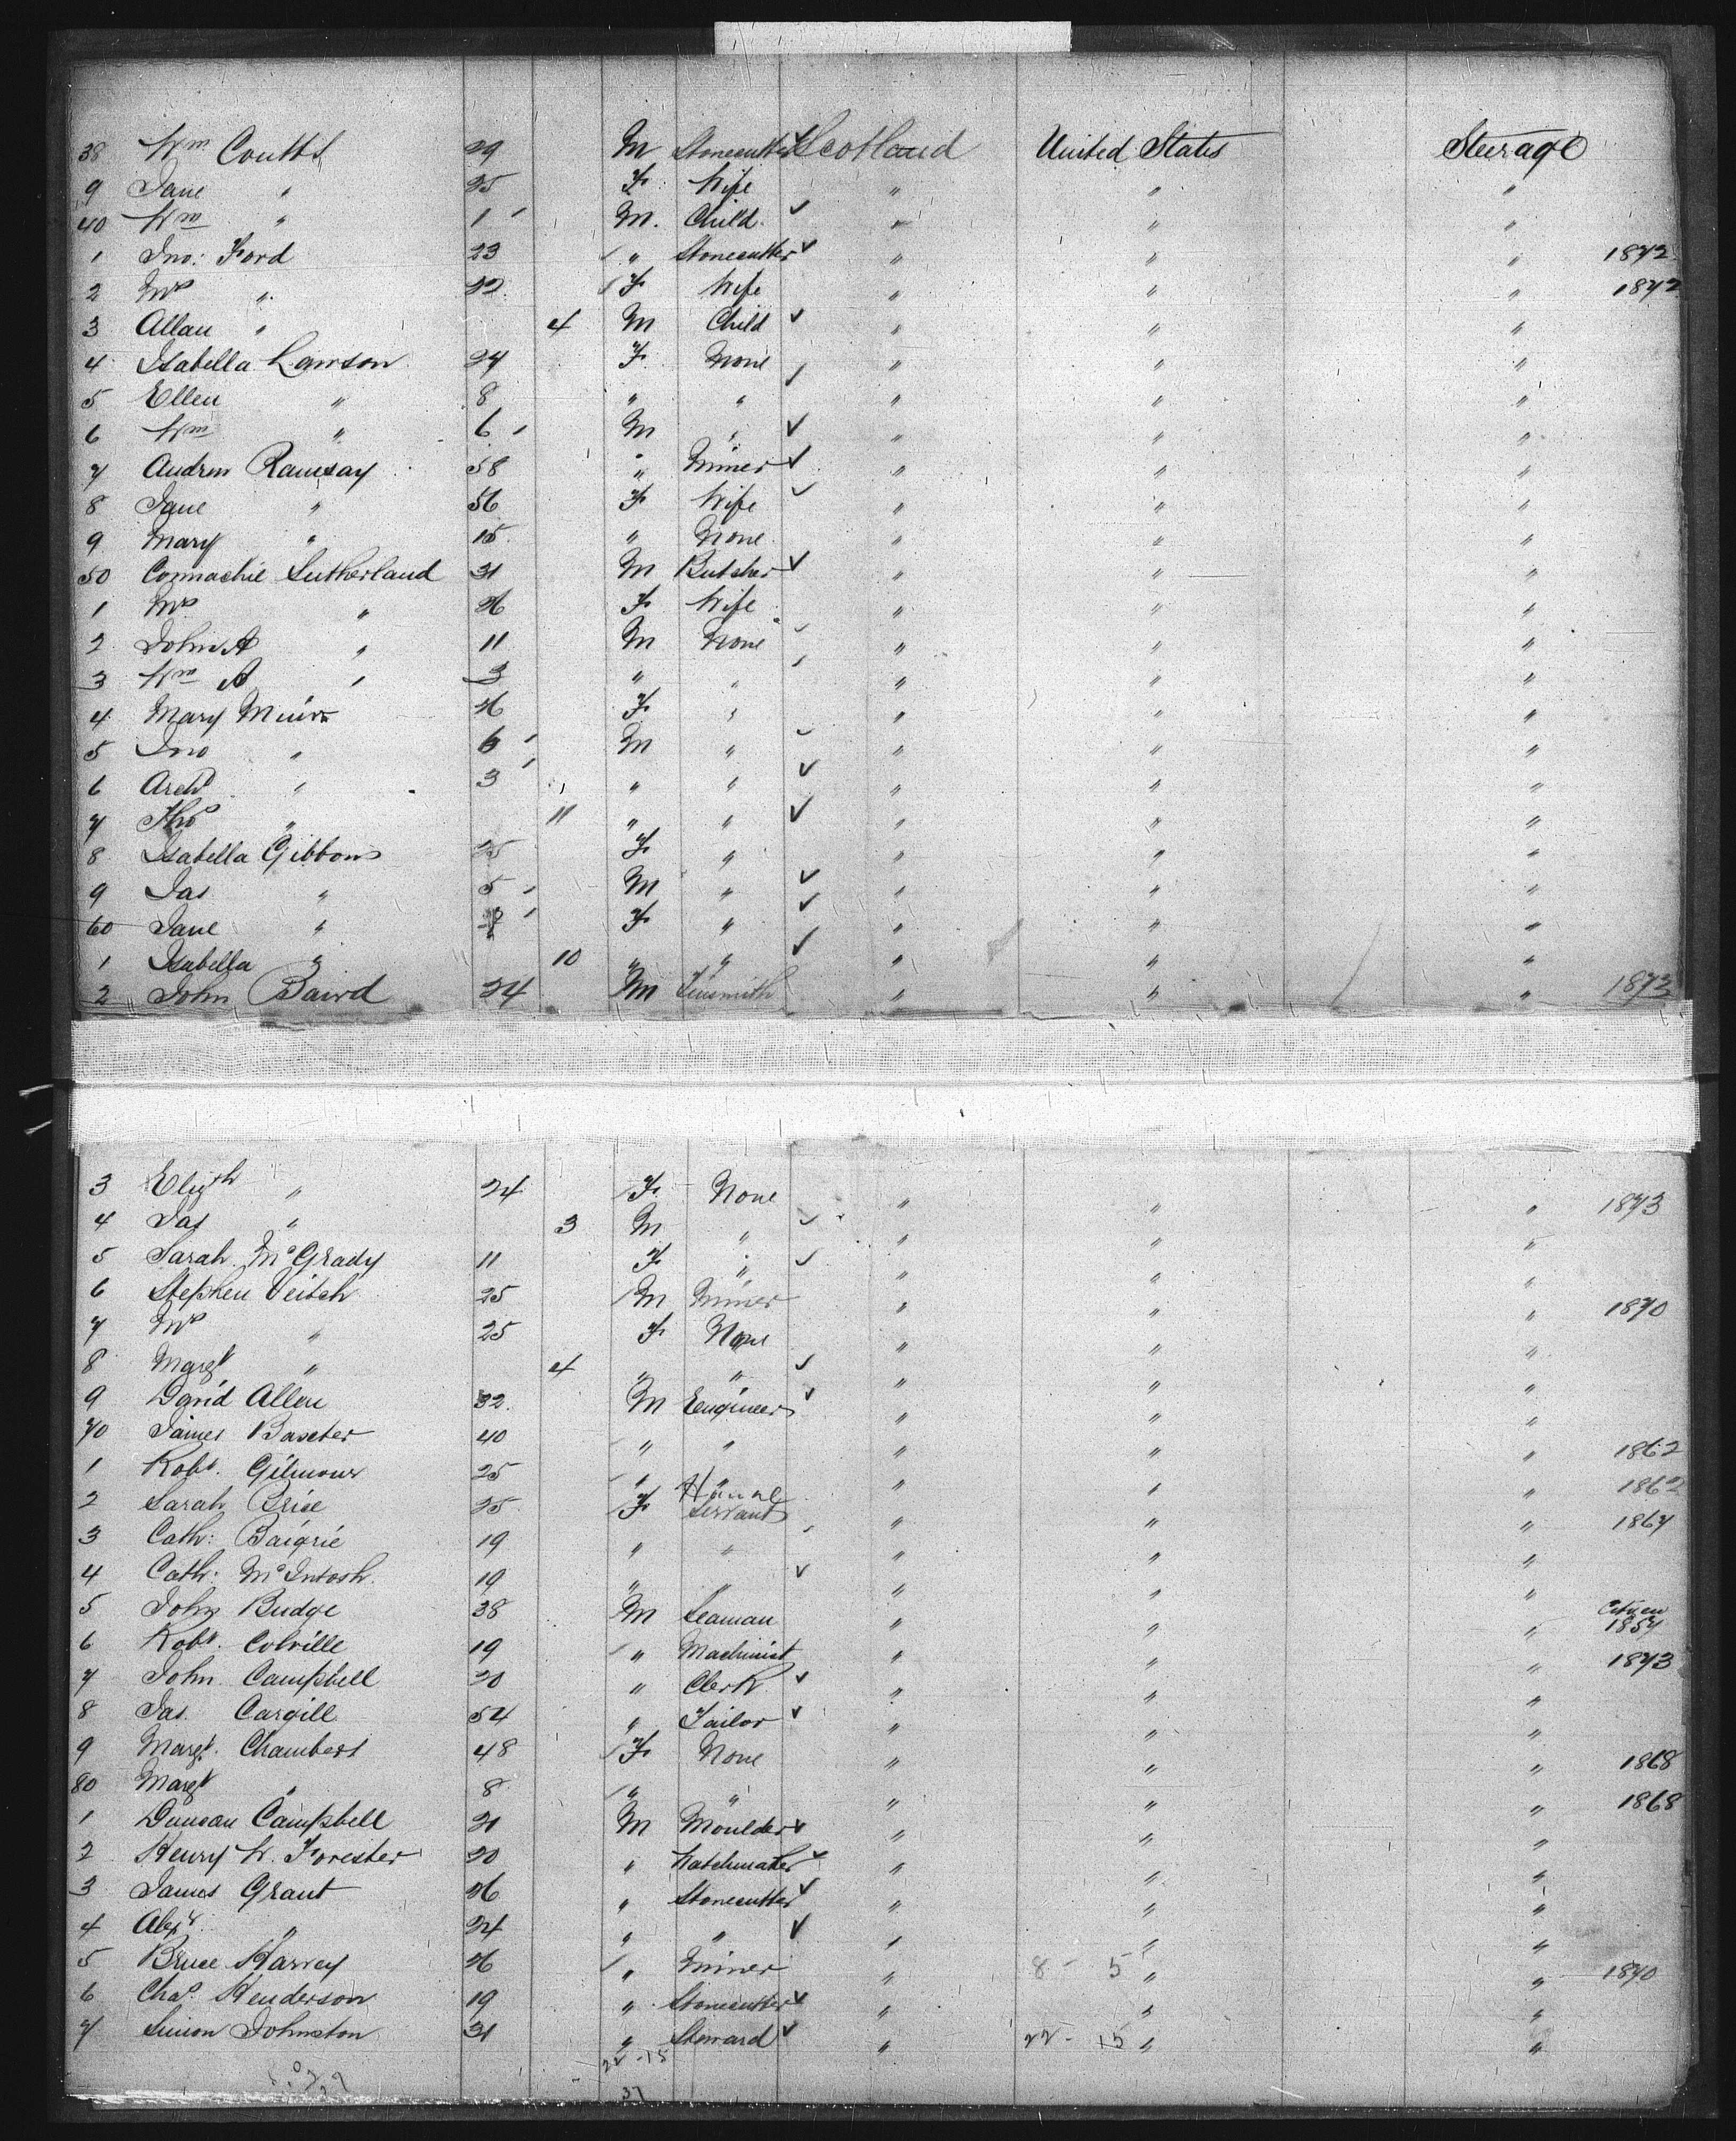 38 Wm Coutts 29 M Stonecutter ✓ Scotland United States Steerage
9 Jane " 25 F. Wife " " "
40 Wm " 1 M. Child ✓ " " "
1 Jno: Ford 23 " Stonecutter ✓ " " " 1872
2 Mrs " 22 F Wife " " " 1872
3 Allan " 4 M Child ✓ " " "
4 Isabella Lawson 24 F. None ✓ " " "
5 Ellen " 8 " " " " "
6 Wm " 6 M " ✓ " " "
7 Andrew Ramsay 58 " Miner ✓ " " "
8 Jane " 56 F Wife ✓ " " "
9 Mary " 15 " None " " "
50 Connachie Sutherland 31 M Butcher ✓ " " "
1 Mrs " 26 F Wife " " "
2 John A " 11 M None ✓ " " "
3 Wm A " 3 " " " " "
4 Mary Muir 26 F " " " "
5 Jno " 6 M " ✓ " " "
6 Archd " 3 " " ✓ " " "
7 Thos " 11 " " ✓ " " "
8 Isabella Gibbons 25 F " " " "
9 Jas " 5 M " ✓ " " "
60 Jane " F " ✓ " " "
1 Isabella " 10 " " ✓ " " "
2 John Baird 24 M Tinsmith " " " 1873
3 Elizth " 24 F. None " " " 1873
4 Jas " 3 M " ✓ " " "
5 Sarah McGrady 11 F " ✓ " " "
6 Stephen Veitch 25 M Miner " " " 1870
7 Mrs " 25 F None " " "
8 Margt " 4 " " ✓ " " "
9 David Allen 32 M Engineer ✓ " " "
70 James Baxter 40 " " " " " 1862
1 Robt. Gilmour 25 " " " " " 1862
2 Sarah Brice 25 F House Servant " " " 1867
3 Cath: Baigrie 19 " " " " "
4 Cath: McIntosh 19 " " ✓ " " "
5 John Budge 38 M Seaman " " " Citizen 1857
6 Robt. Colville 19 " Machinist " " " 1873
7 John Campbell 20 " Clerk ✓ " " "
8 Jas. Cargill 54 " Tailor ✓ " " "
9 Margt. Chambers 48 F None " " " 1868
80 Margt " 8 " " " " " 1868
1 Duncan Campbell 21 M Moulder ✓ " " "
2 Henry W. Forester 20 " Watchmaker ✓ " " "
3 James Grant 26 " Stonecutter ✓ " " "
4 Alexr " 24 " " ✓ " " "
5 Bruce Harvey 26 " Miner " 8 - 5 " " 1870
6 Chas. Henderson 19 " Stonecutter ✓ " " "
7 Simon Johnston 31 " Steward ✓ " 22 - 15 " "
22 - 15
37